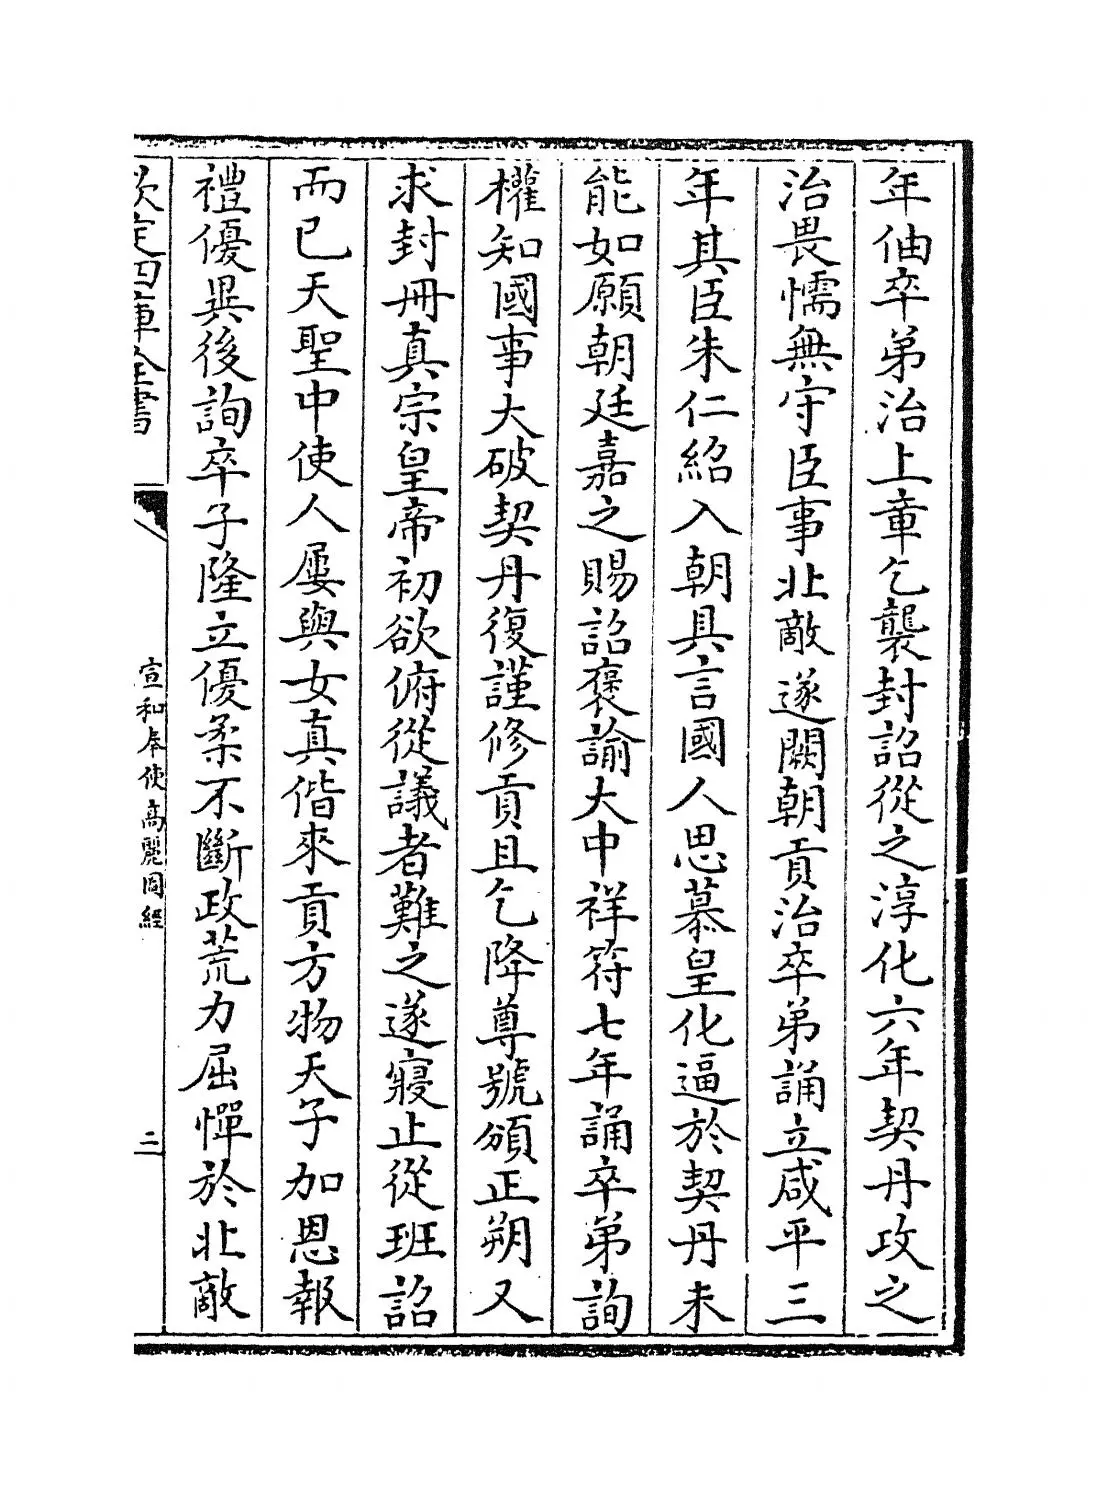 年伷卒弟治上章乞襲封詔從之淳化六年契丹攻之
治畏懦無守臣事北敵遂闕朝貢治卒弟誦立咸平三
年其臣朱仁紹入朝具言國人思慕皇化逼於契丹未
能如願朝廷嘉之賜詔褒諭大中祥符七年誦卒弟詢
權知國事大破契丹復謹修貢且乞降尊號頒正朔又
求封冊真宗皇帝初欲俯從議者難之遂寢止從班詔
而已天聖中使人屢與女真偕來貢方物天子加恩報
禮優異後詢卒子隆立優柔不斷政荒力屈憚於北敵
欽定四庫全書
宣和奉使高麗圖經
二